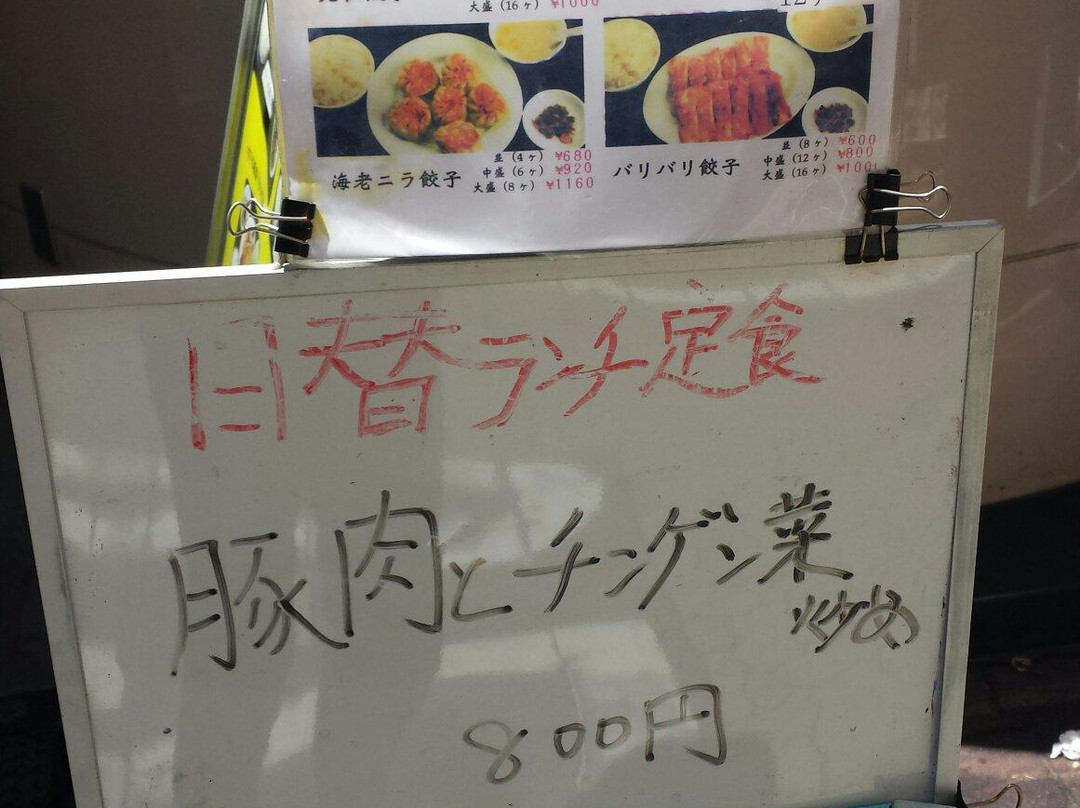 大盛(16ヶ) ¥1000
12ヶ
並(4ヶ) ¥680
中盛(6ヶ) ¥920
大盛(8ヶ) ¥1160
海老ニラ餃子
並(8ヶ) ¥600
中盛(12ヶ) ¥800
大盛(16ヶ)
バリバリ餃子
日替ランチ定食
豚肉とチンゲン菜
炒め
800円